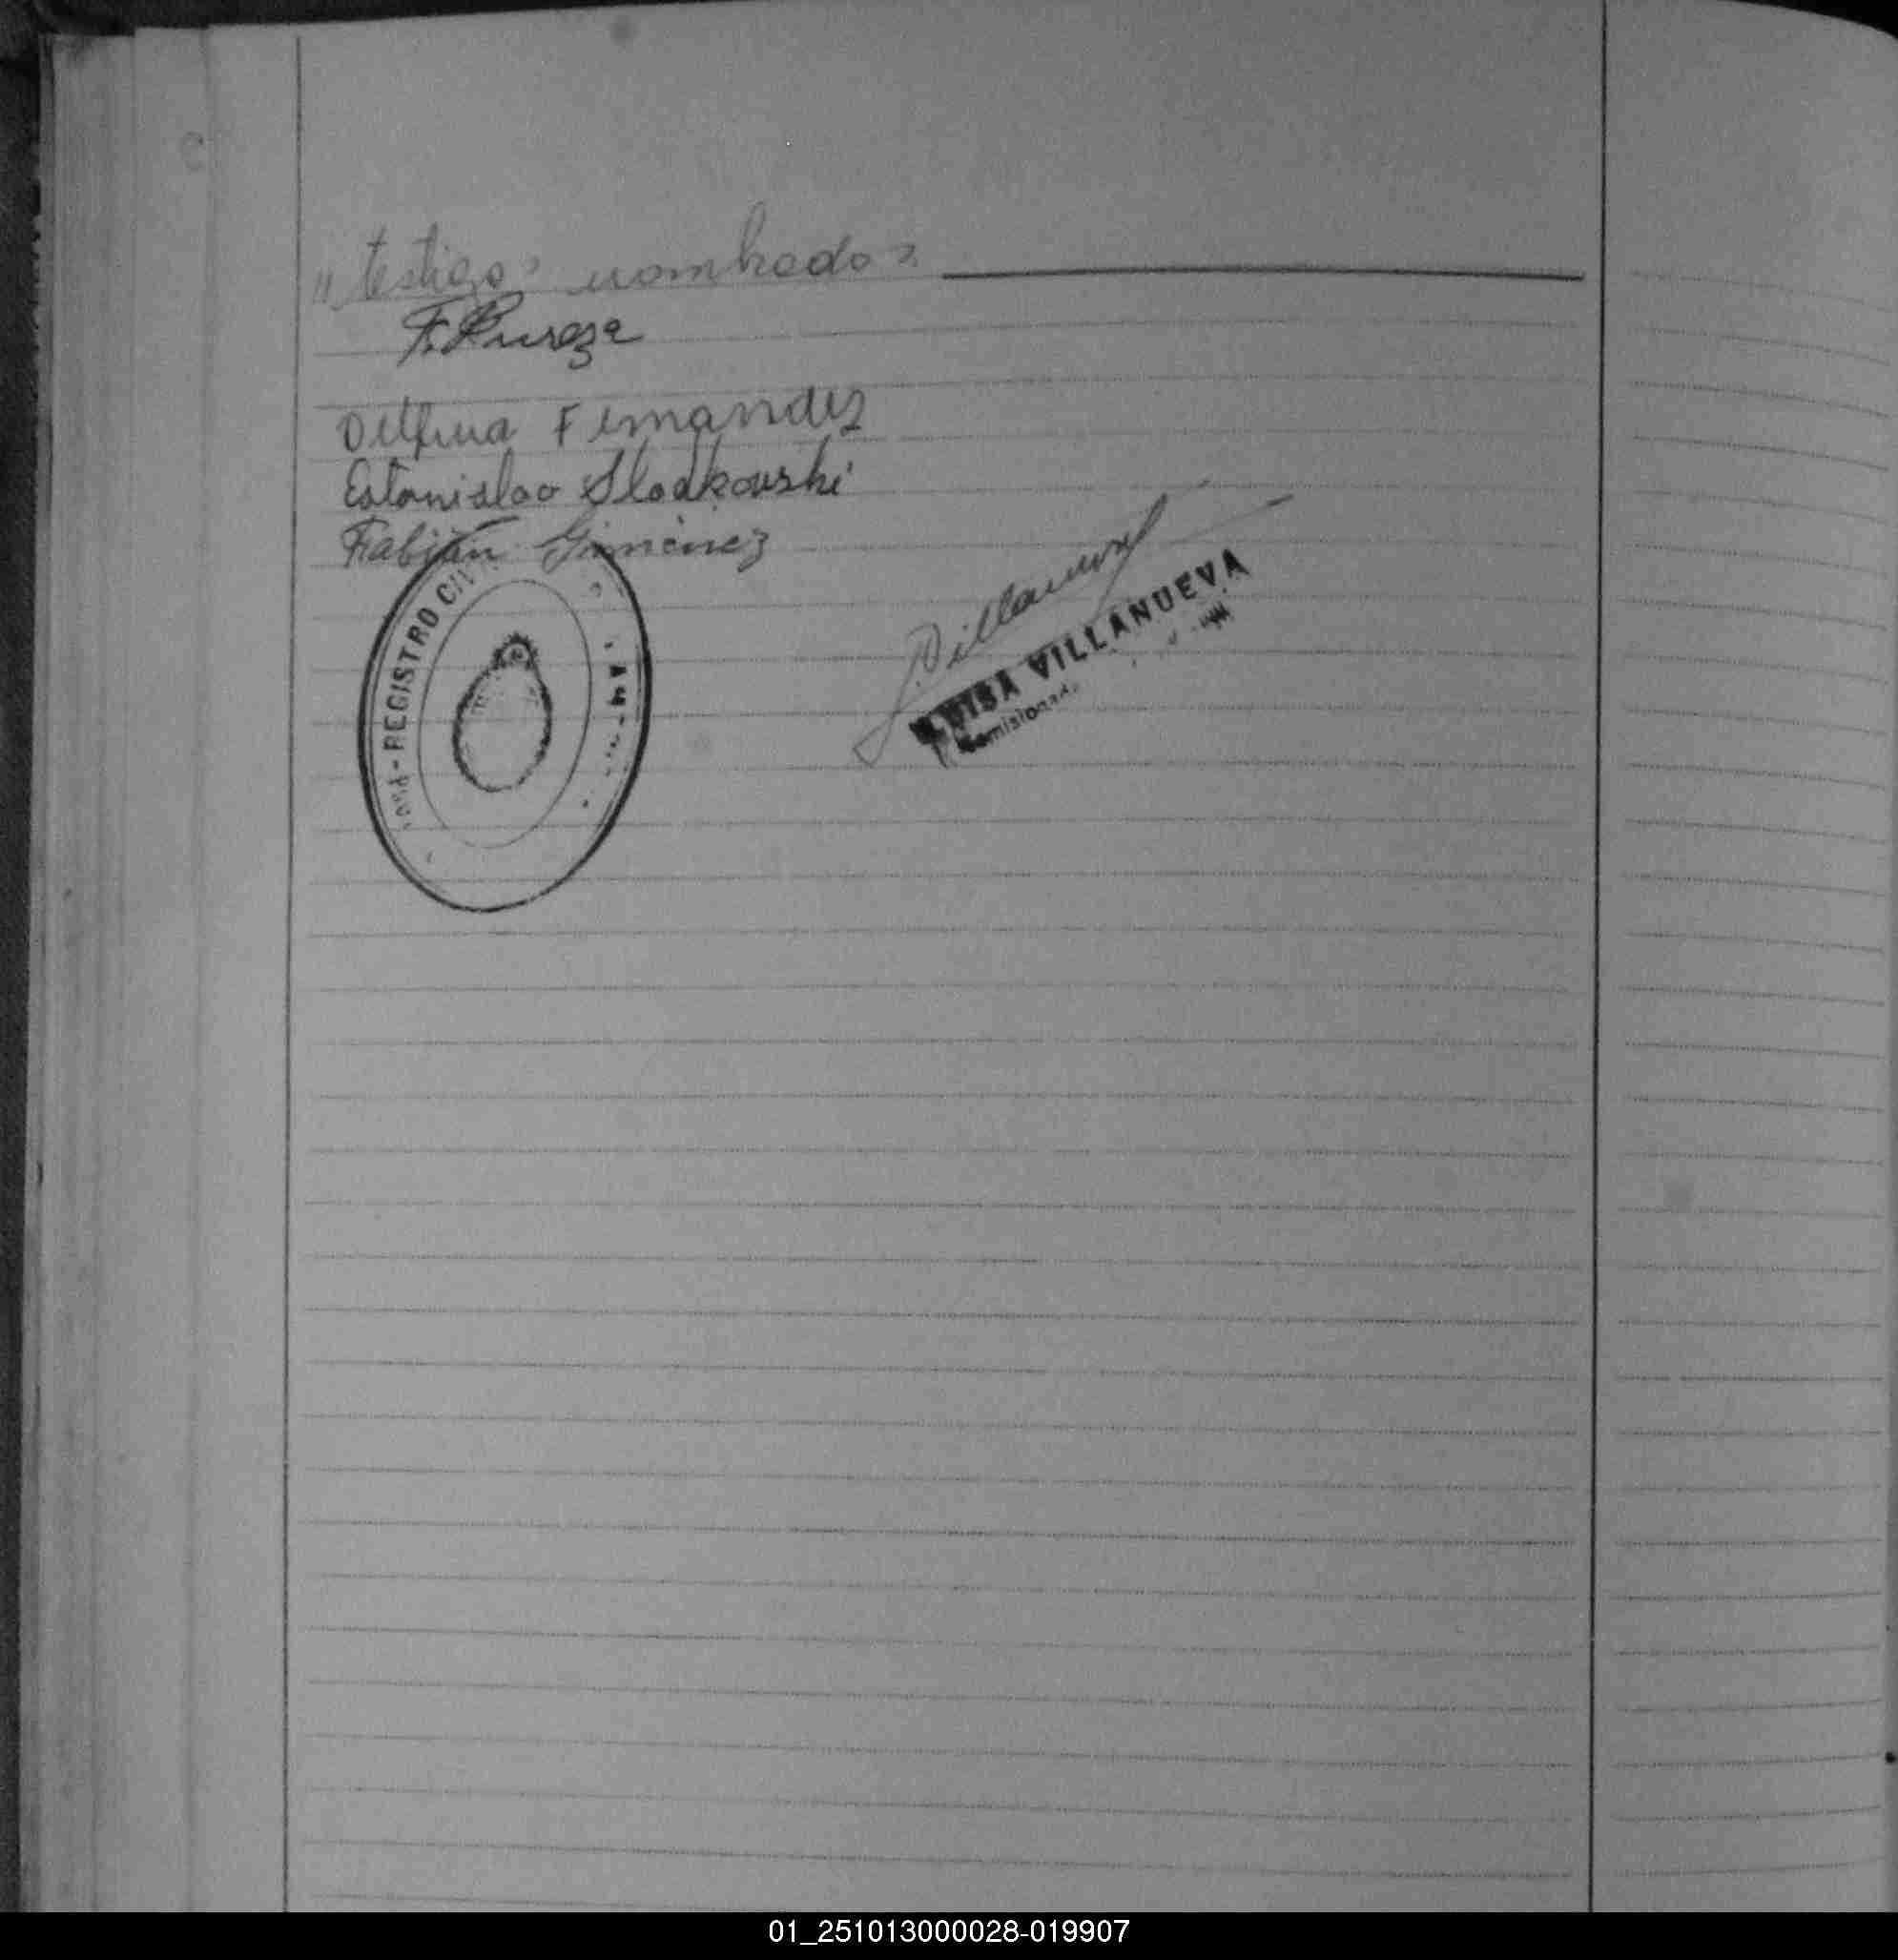 " testigos nombrados
F. Pureza
Delfina Fernandez
Estanislao Slodkowski
Fabián Giménez
REGISTRO CIVIL
Villanueva
LUISA VILLANUEVA
Comisionada
01_251013000028-019907